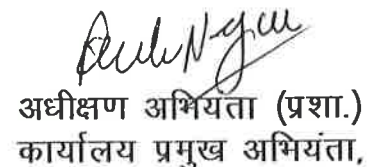 अधीक्षण अभियंता (प्रशा.)
कार्यालय प्रमुख अभियंता,